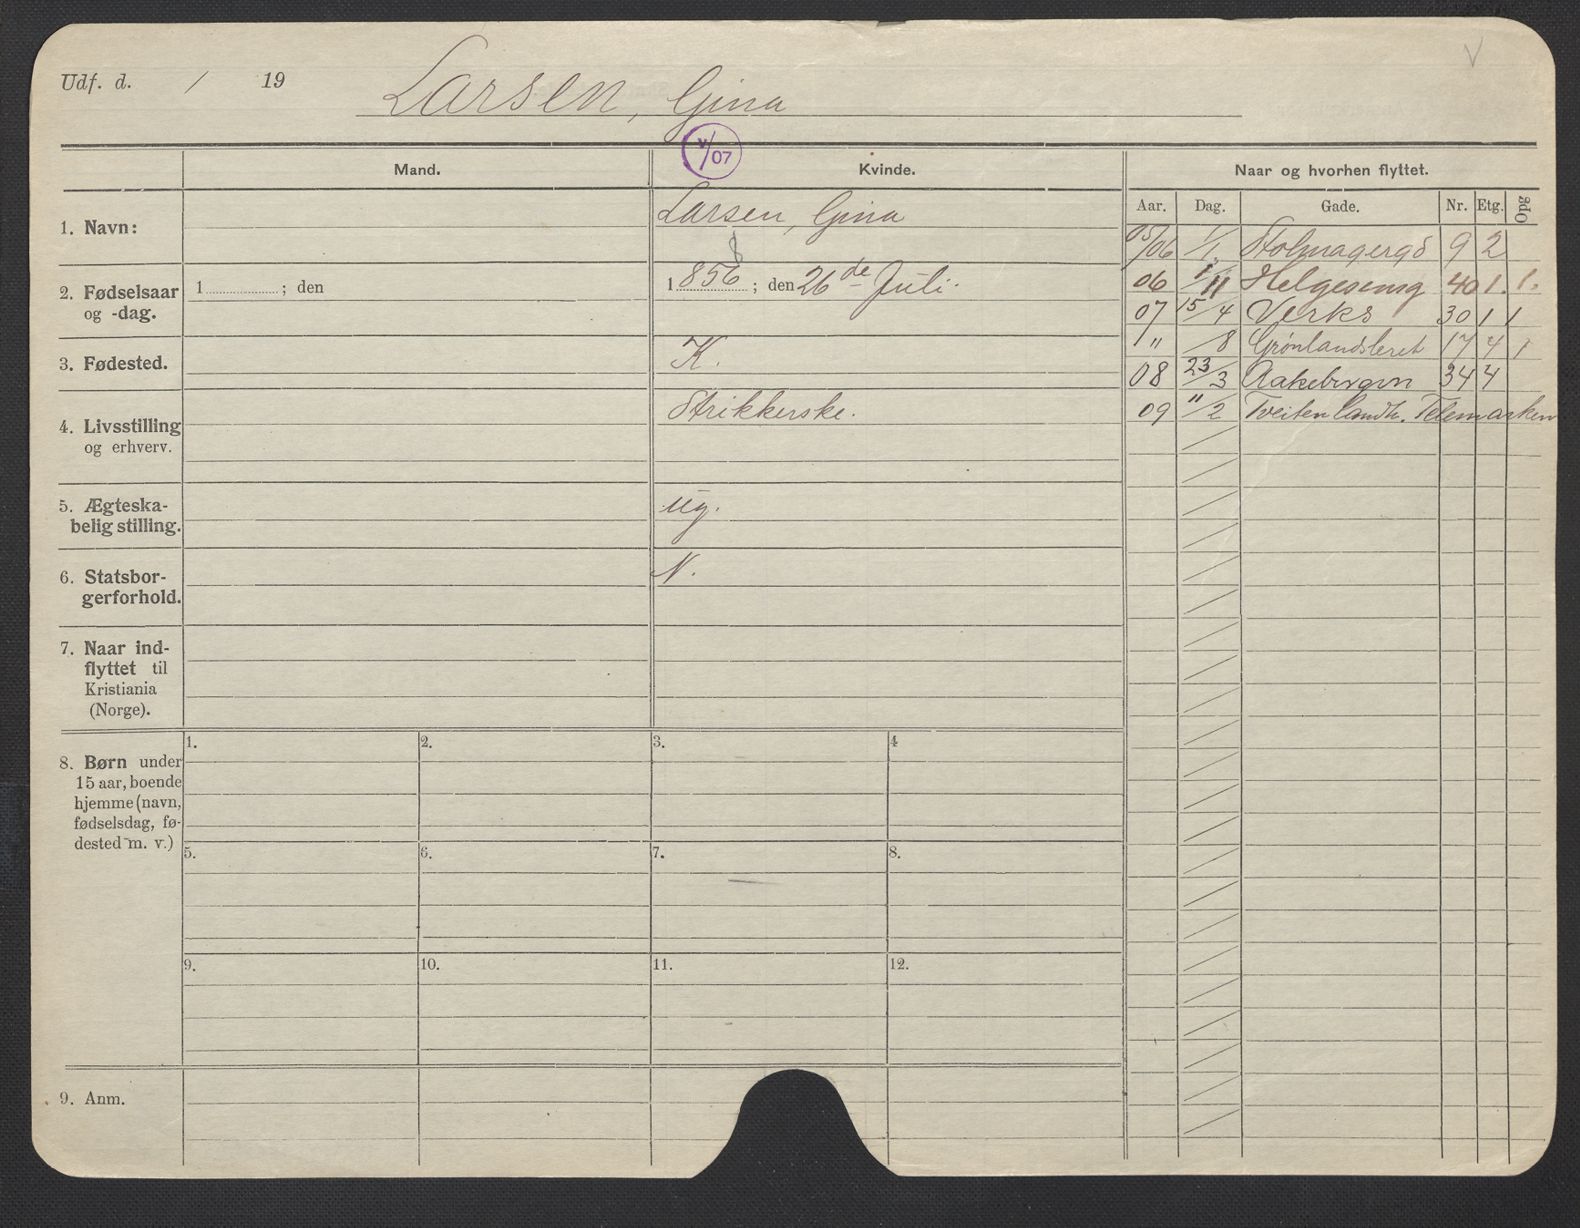 Udf. d. / 19
Larsen, Gina
V
v/07
Mand.
Kvinde.
Naar og hvorhen flyttet.
Aar. Dag. Gade. Nr. Etg. Opg
1. Navn:
Larsen, Gina
2. Fødselsaar
og -dag.
1 ; den
8
1856 ; den 26de Juli.
3. Fødested.
K.
4. Livsstilling
og erhverv.
Strikkerske.
5. Ægteska-
belig stilling.
ug.
6. Statsbor-
gerforhold.
N.
7. Naar ind-
flyttet til
Kristiania
(Norge).
05/06 1/1 Stolmagergd 9 2
06 1/11 Helgesensg 40 1. 1.
07 15/4 Verks 30 1 1
" /8 Grønlandsleret 17 4 1
08 23/3 Aakebergvn 34 4
09 "/2 Tveiten Landh. Telemarken.
8. Børn under
15 aar, boende
hjemme (navn,
fødselsdag, fø-
dested m. v.)
1. 2. 3. 4
5. 6. 7. 8.
9. 10. 11. 12.
9. Anm.